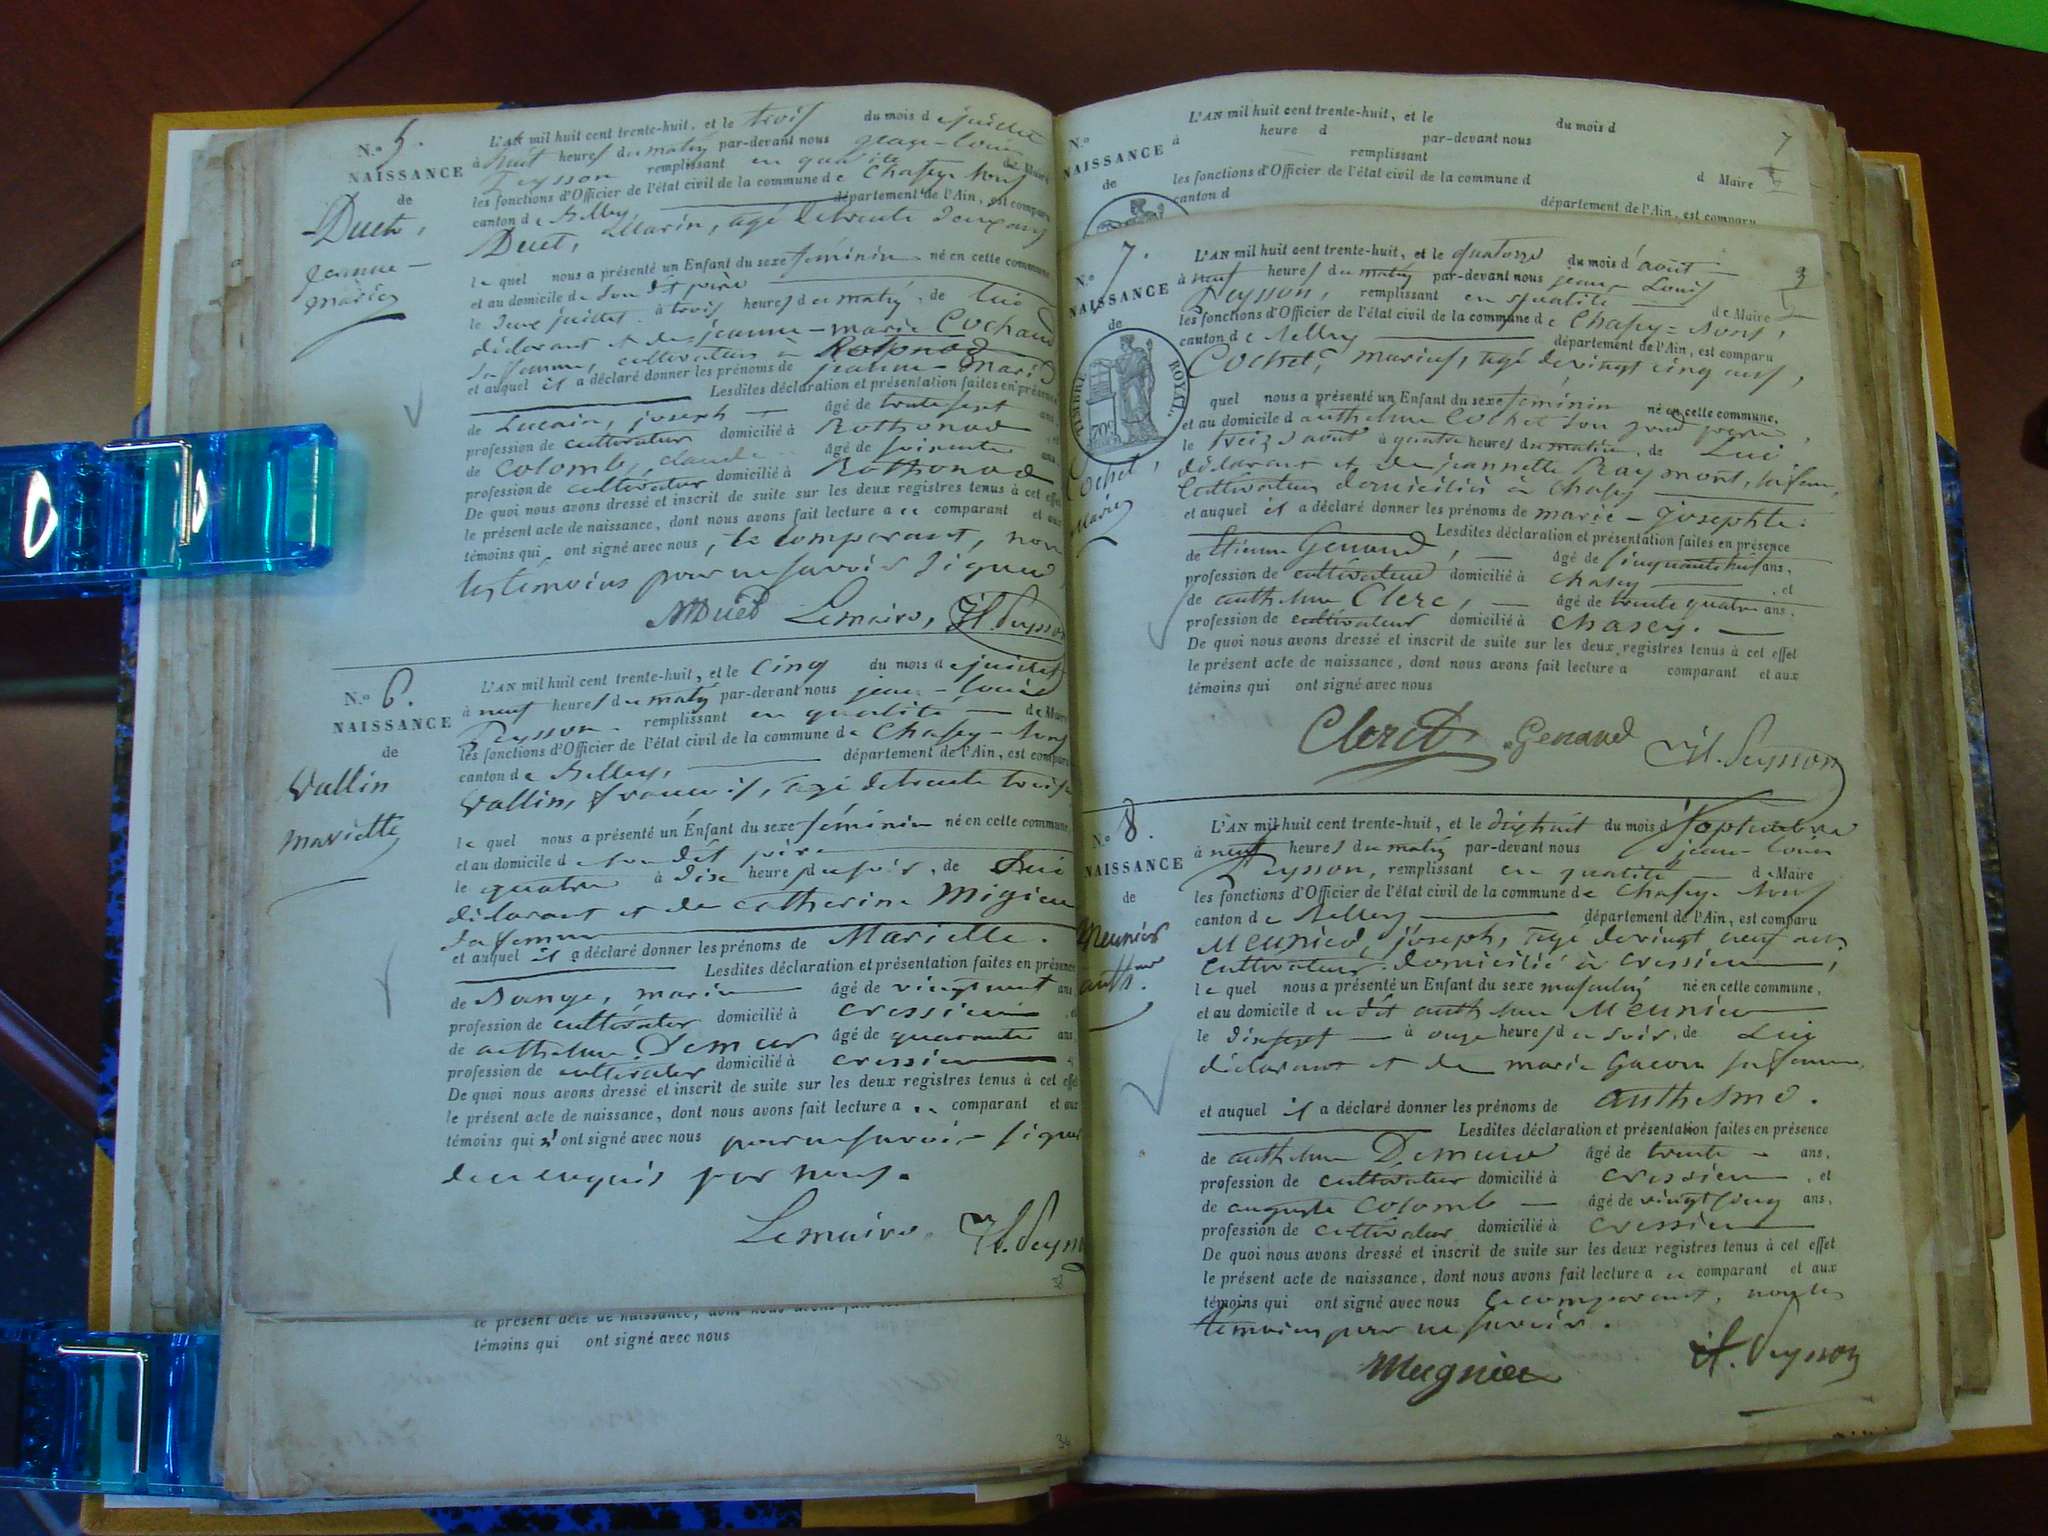 N.º 5.
NAISSANCE
de
Duet,
jeanne-
marie
L'AN mil huit cent trente-huit, et le trois du mois de juillet
à huit heures du matin par-devant nous jean-louis
Peysson remplissant en qualité de Maire
les fonctions d'Officier de l'état civil de la commune de Chasey-Bons
canton de Belley, département de l'Ain, est comparu
Duet, Marin, agé de trente deux ans
le quel nous a présenté un Enfant du sexe féminin né en cette commune
et au domicile de son dit père
le deux juillet à trois heures du matin, de lui
déclarant et de jeanne-marie Cochaud
sa femme, cultivateurs à Rothonod
et auquel il a déclaré donner les prénoms de jeanne-marie
Lesdites déclaration et présentation faites en présence
de joseph âgé de trente sept ans
profession de cultivateur domicilié à Rothonod
de Colomb, claude âgé de soixante ans
profession de cultivateur domicilié à Rothonod
De quoi nous avons dressé et inscrit de suite sur les deux registres tenus à cet effet
le présent acte de naissance, dont nous avons fait lecture a u comparant et aux
témoins qui ont signé avec nous, le comparant, non
les témoins pour ne savoir signer
MDuet Lemaire, JL. Peysson
N.º 6.
NAISSANCE
de
Vallin
Mariette
L'AN mil huit cent trente-huit, et le cinq du mois de juillet
à neuf heures du matin par-devant nous jean-louis
Peysson remplissant en qualité de Maire
les fonctions d'Officier de l'état civil de la commune de Chasey-Bons
canton de Belley, département de l'Ain, est comparu
Vallin, françois, agé de trente trois
le quel nous a présenté un Enfant du sexe féminin né en cette commune
et au domicile de son dit père
le quatre à dix heures du soir, de lui
déclarant et de catherine Migieu
sa femme
et auquel il a déclaré donner les prénoms de Mariette.
Lesdites déclaration et présentation faites en présence
de marin âgé de vingt neuf ans
profession de cultivateur domicilié à cressieu et
de anthelme Demeur âgé de quarante ans
profession de cultivateur domicilié à cressieu
De quoi nous avons dressé et inscrit de suite sur les deux registres tenus à cet effet
le présent acte de naissance, dont nous avons fait lecture a u comparant et aux
témoins qui n'ont signé avec nous pour ne savoir signer
de ce enquis par nous.
Lemaire, JL. Peysson
38
le présent acte de naissance, dont nous avons fait
témoins qui ont signé avec nous
36
N.º
NAISSANCE
de
L'AN mil huit cent trente-huit, et le du mois d
à heure d par-devant nous
remplissant
les fonctions d'Officier de l'état civil de la commune d d Maire
canton d
département de l'Ain, est comparu
7
N.º 7.
NAISSANCE
de
TIMBRE ROYAL
70c
Cochet,
Marie
L'AN mil huit cent trente-huit, et le quatorze du mois d'août
à neuf heures du matin par-devant nous jean-Louis
Peysson, remplissant en qualité de Maire
les fonctions d'Officier de l'état civil de la commune de Chasey-Bons,
canton de Belley département de l'Ain, est comparu
Cochet, marius, agé de vingt cinq ans,
quel nous a présenté un Enfant du sexe féminin né en cette commune,
et au domicile d'anthelme Cochet son grand père,
le treize août à quatre heures du matin, de Lui
déclarant et de jeannette Raymont, sa femme,
Cultivateurs domiciliés à Chasey
et auquel il a déclaré donner les prénoms de marie-josephte.
Lesdites déclaration et présentation faites en présence
de Etienne Genaud, âgé de cinquante huit ans,
profession de cultivateur domicilié à Chasey et
de anthelme Clerc, âgé de trente quatre ans.
profession de cultivateur domicilié à Chasey.
De quoi nous avons dressé et inscrit de suite sur les deux registres tenus à cet effet
le présent acte de naissance, dont nous avons fait lecture a comparant et aux
témoins qui ont signé avec nous
Clerc Genaud JL. Peysson
N.º 8.
NAISSANCE
de
Meunier
anth.me
L'AN mil huit cent trente-huit, et le dixhuit du mois d septembre
à neuf heures du matin par-devant nous jean-louis
Peysson, remplissant en qualité de Maire
les fonctions d'Officier de l'état civil de la commune de Chasey-Bons
canton de Belley département de l'Ain, est comparu
Meunier, joseph, agé de vingt neuf ans
Cultivateur domicilié à cressieu,
le quel nous a présenté un Enfant du sexe masculin né en cette commune,
et au domicile du dit anthelme Meunier
le dixsept à onze heures du soir, de Lui
déclarant et de marie Gacon sa femme,
et auquel il a déclaré donner les prénoms de anthelme.
Lesdites déclaration et présentation faites en présence
de anthelme Demeure âgé de trente ans,
profession de cultivateur domicilié à cressieu, et
de auguste Colomb âgé de vingt cinq ans,
profession de cultivateur domicilié à cressieu
De quoi nous avons dressé et inscrit de suite sur les deux registres tenus à cet effet
le présent acte de naissance, dont nous avons fait lecture a u comparant et aux
témoins qui ont signé avec nous le comparant, non les
témoins pour ne savoir.
Mugnier JL. Peysson